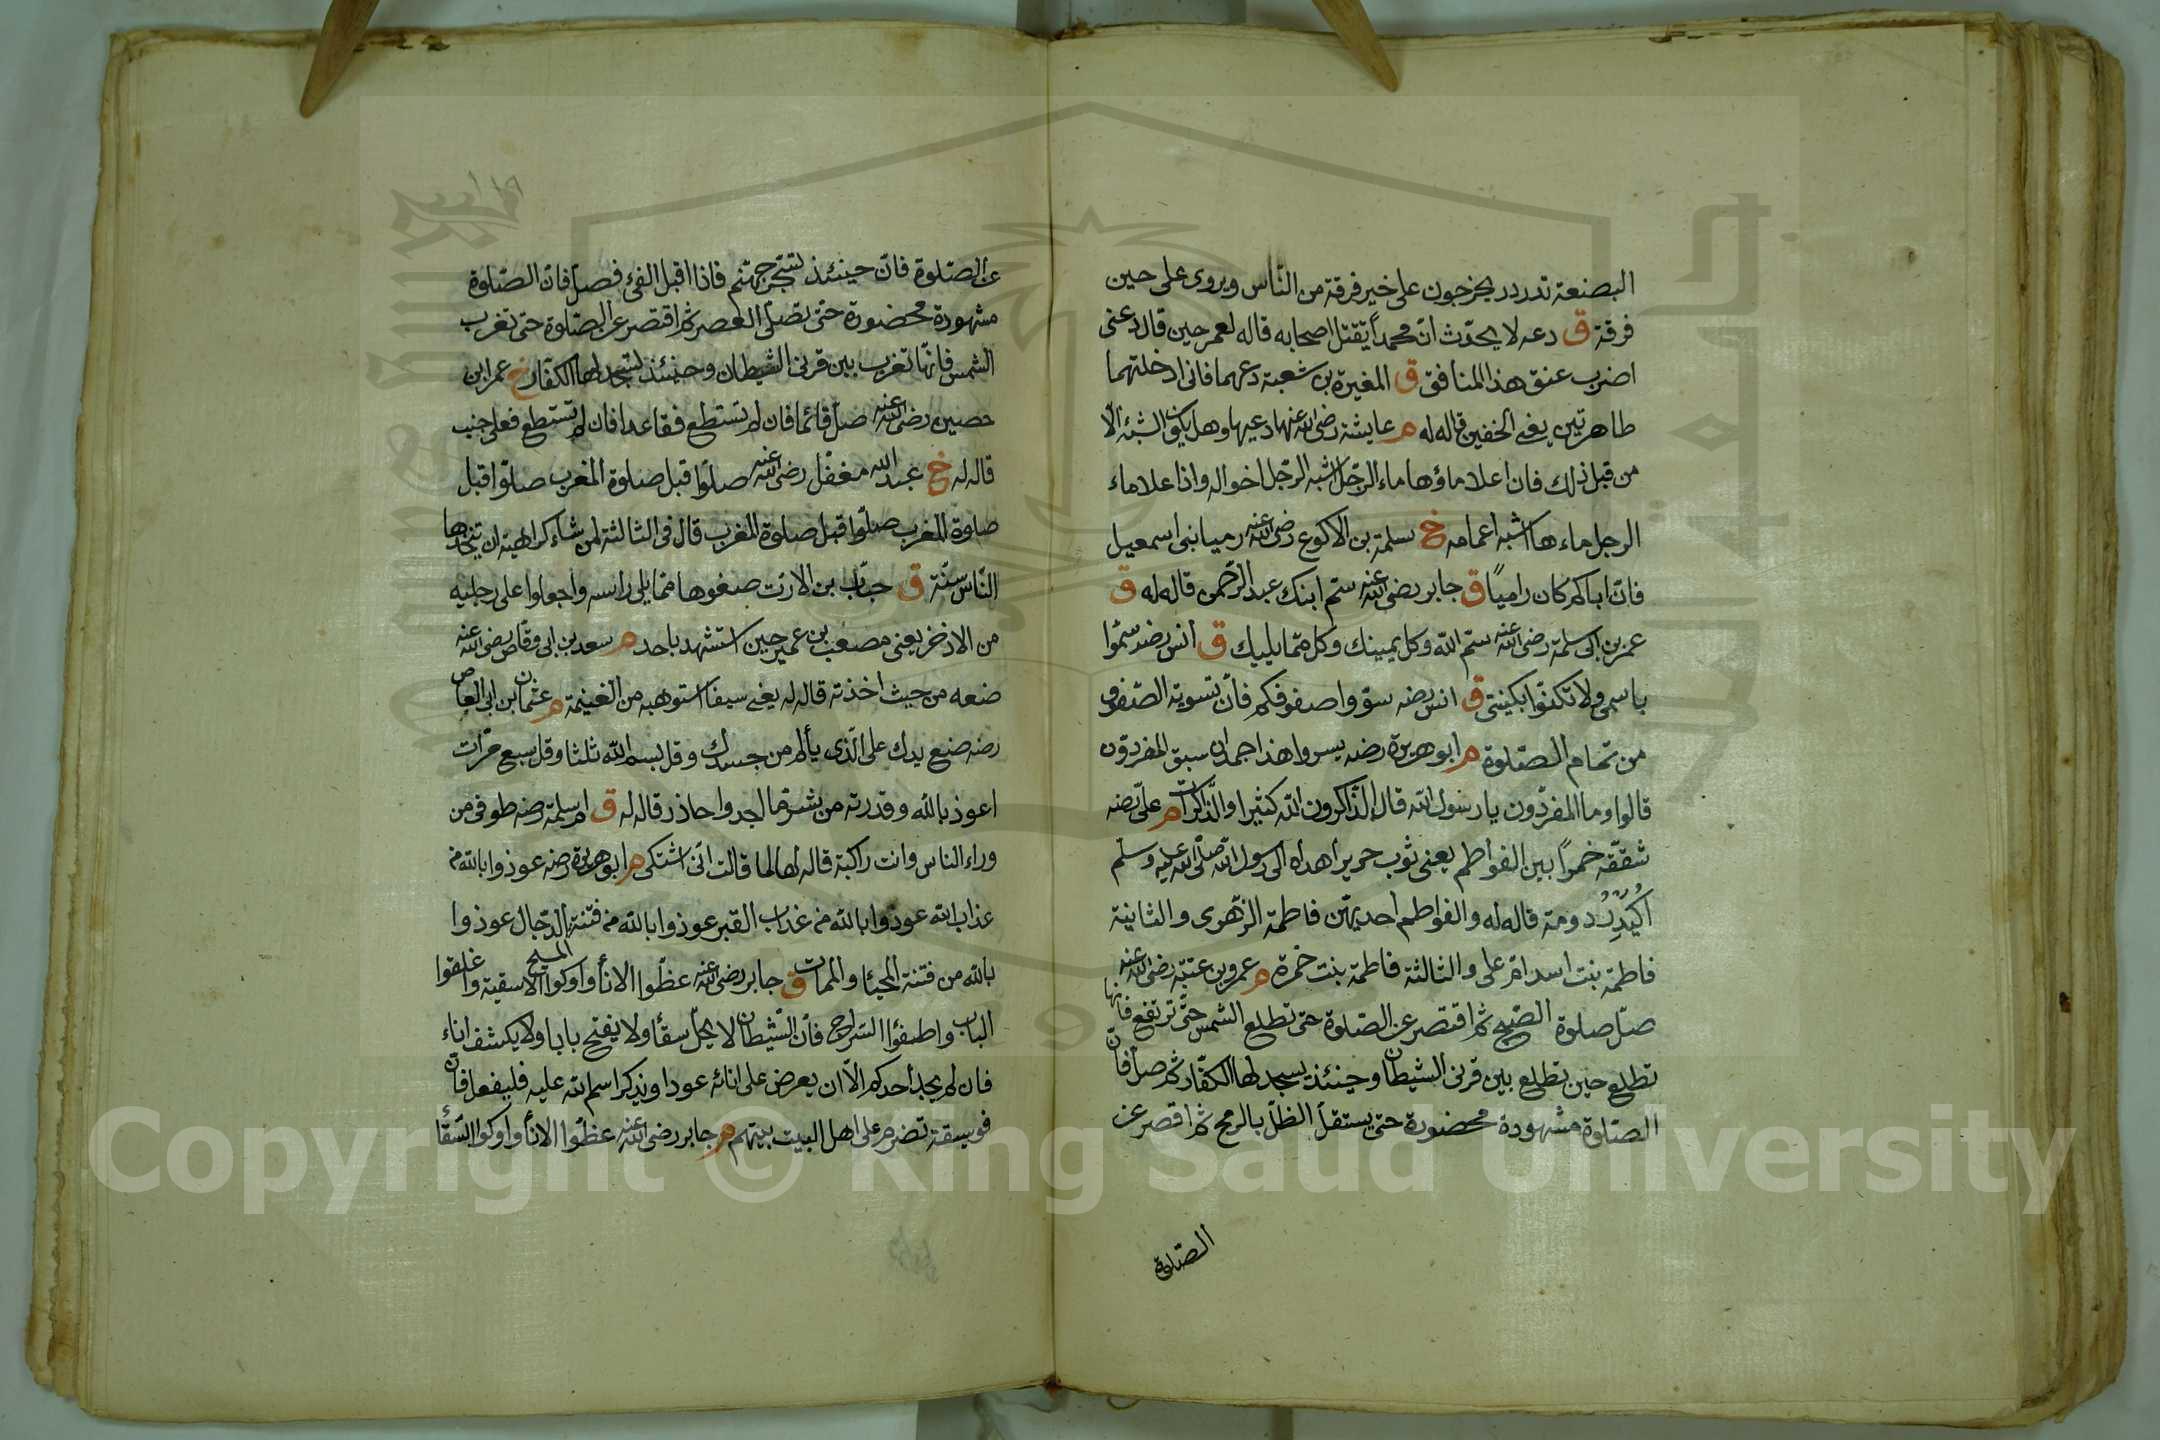 البضعة تدردر يخرجون على خير فرقة من الناس ويروى على حين
فرقة ق دعه لا يحدّث انّ محمداً يقتل اصحابه قاله لعمر حين قال دعنى
اضرب عنق هذا المنافق ق المغيرة بن شعبة دعهما فانى ادخلتهما
طاهرتين يعنى الخفين قاله له م عايشة رضى الله عنها دعيها وهل يكون الشبه الا
من قبل ذلك فان اعلا ماؤها ماء الرجل اشبه الرجل اخواله واذا علا ماء
الرجل ماءها اشبه اعمامه خ سلمة بن الاكوع رضى الله عنه رميا بنى اسمعيل
فانّ اباكم كان رامياً ق جابر رضى الله عنه سمّ ابنك عبد الرحمن قاله له ق
عمر بن ابى سلمة رضى الله عنه سمّ الله وكل بيمينك وكل ممّا يليك ق انس رضه سمّوا
باسمى ولا تكنّوا بكنيتى ق انس رضه سوّوا صفوفكم فانّ تسوية الصّفوف
من تمام الصّلوة م ابو هريرة رضه سيروا هذا جمدان سبق المفرّدون
قالوا وما المفرّدون يا رسول الله قال الذّاكرون الله كثيرا والذّاكرات م علىّ رضه
شقّقه خمراً بين الفواطم يعنى ثوب حرير اهداه الى رسول الله صلّى الله عليه وسلّم
اُكَيْدِرُ دومة قاله له والفواطم احديهنّ فاطمة الزّهرى والثانية
فاطمة بنت اسد امّ على والثالثة فاطمة بنت حمزة م عمرو بن عنبة رضى الله عنه
صلّ صلوة الصّبح ثم اقتصر عن الصّلوة حتى تطلع الشمس حتّى ترتفع فانها
تطلع حين تطلع بين قرنى الشيطان وحينئذ يسجد لها الكفّار ثم صلّ فانّ
الصّلوة مشهودة محضورة حتى يستقلّ الظلّ بالرمح ثم اقصر عن
الصّلوة
عن الصّلوة فانّ حينئذ تسجر جهنم فاذا اقبل الفئ فصلّ فانّ الصّلوة
مشهودة محضورة حتى تصلّى العصر ثم اقتصر عن الصّلوة حتى تغرب
الشمس فانّها تغرب بين قرنى الشيطان وحينئذ يسجد لها الكفّار خ عمر ابن
حصين رضى الله عنه صلّ قائما فان لم تستطع فقاعدا فان لم تستطع فعلى جنب
قاله له خ عبد الله مغفّل رضى الله عنه صلّوا قبل صلوة المغرب صلّوا قبل
صلوة المغرب صلّوا قبل صلوة المغرب قال فى الثالثة لمن شاء كراهية ان يتخذها
النّاس سنّة ق خبّاب بن الارت ضعوها ممّا يلى راسه واجعلوا على رجليه
من الاذخر يعنى مصعب بن عمير حين استشهد باحد م سعد بن ابى وقّاص رضى الله عنه
ضعه من حيث اخذته قاله له يعنى سيفا استوهبه من الغنيمة م عثمان بن ابى العاص
رضه ضع يدك على الّذى يألم من جسدك وقل بسم الله ثلثا وقل سبع مرّات
اعوذ بالله وقدرته من شرّ ما اجد واحاذر قاله له ق ام سلمة رضه طوفى من
وراء الناس وانت راكبة قاله لها لما قالت انّى اشتكى م ابو هريرة رضه عوذوا بالله من
عذاب الله عوذوا بالله من عذاب القبر عوذوا بالله من فتنة المسيح الدّجّال عوذوا
بالله من فتنة المحيا والممات ق جابر رضى الله عنه غطّوا الاناء واوكوا الاسقية واغلقوا
الباب واطفئوا السّراج فانّ الشّيطان لا يحلّ سقاء ولا يفتح بابا ولا يكشف اناء
فان لم يجد احدكم الّا ان يعرض على انائه عودا ويذكر اسم الله عليه فليفعل فانّ
فويسقة تضرم على اهل البيت بيتهم م جابر رضى الله عنه غطّوا الاناء واوكوا السّقاء
Copyright © King Saud University